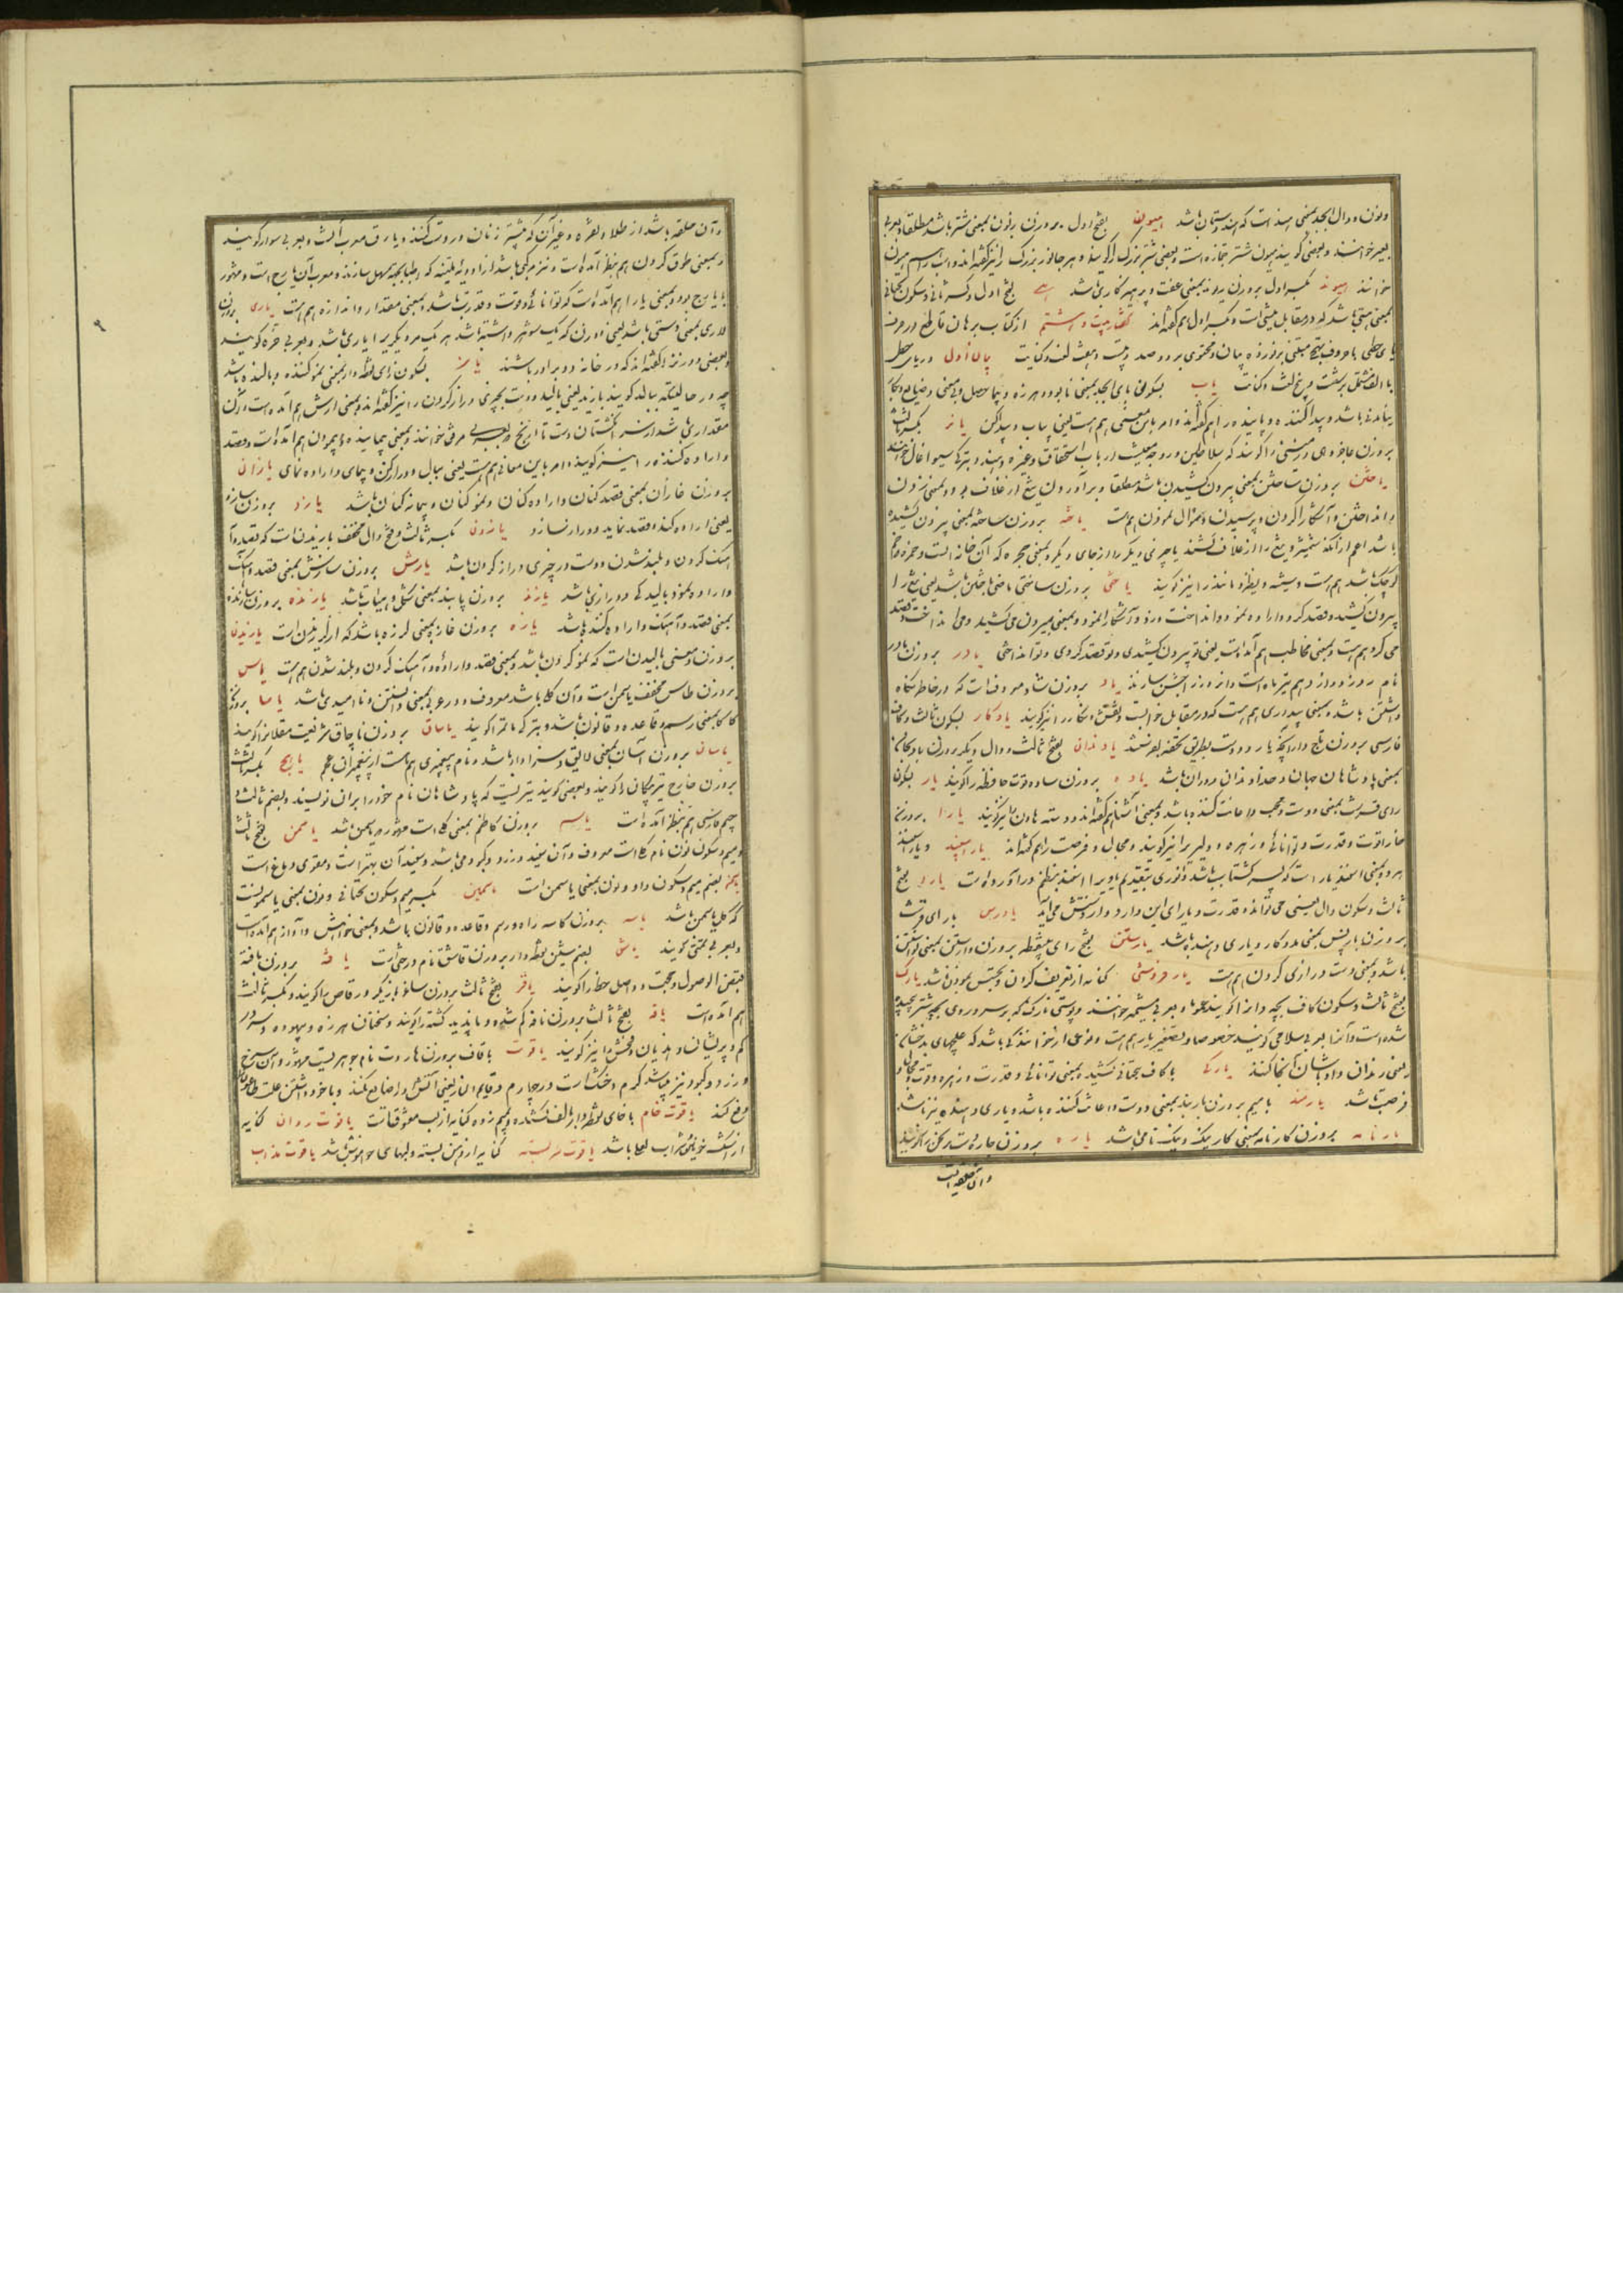 ونون و دال ابجد بمعنی هند است که هندوستان باشد هیون بفتح اول بر وزن زبون بمعنی شتر باشد مطلقا و بعربی
بعیر خوانند و بعضی گویند هیون شتر جمازه است و بعضی شتر بزرگ را گویند و هر جانور بزرگ را نیز گفته‌اند و اسب را هم هیون
خوانند هیوند بکسر اول بر وزن ریوند بمعنی عفت و پرهیزکاری باشد هی بفتح اول و کسر ثانی و سکون تحتانی
بمعنی هستی باشد که در مقابل نیستی است و بکسر اول هم گفته‌اند گفتار بیست و هشتم از کتاب برهان قاطع در حرف
یای حطی با حروف تهجی مبتنی بر نوزده بیان و محتوی بر دوصد و بیست و هفت لغت و کنایت بیان اول در یای حطی
با الف مشتمل بر لغت و کنایت یاب بسکون بای ابجد بمعنی نابود و هرزه و بی‌حاصل و بی‌معنی و ضایع و بکار
نیامدنی باشد و پیدا کننده و یابنده را هم گفته‌اند و امر باین معنی هم هست یعنی بیاب و پیدا کن
یاختن بر وزن ساختن بمعنی بیرون کشیدن باشد مطلقا و برآوردن تیغ از غلاف بود و بمعنی زدن
و انداختن و آشکارا کردن و پرسیدن و سؤال نمودن هم هست یاخته بر وزن ساخته بمعنی بیرون کشیده
باشد اعم از آنکه شمشیر و تیغ را از غلاف کشند یا چیزی دیگر را از جای دیگر و بمعنی حجره که آن خانه است
کوچک باشد هم هست و شیشه و نظیر و مانند را نیز گویند یاختی بر وزن ساختی ماضی یاختن باشد یعنی تیغ را
بیرون کشید و قصد کرد و اراده نمود و انداخت و زد و آشکارا نمود و بمعنی بیرون می‌کشید و می‌انداخت و قصد
می‌کرد هم هست و بمعنی مخاطب هم آمده است یعنی تو بیرون کشیدی و تو قصد کردی و تو انداختی یادر بر وزن مادر
نام روز دوازدهم تیر ماه است و این روز را جشن سازند یاد بر وزن شاد معروف است که در خاطر نگاه
داشتن باشد و بمعنی بیداری هم هست که در مقابل خواب است و نقش و نگار را نیز گویند یادگار بسکون ثالث و کاف
فارسی بر وزن تاجدار آنچه یار و دوست بطریق تحفه بفرستند یادندان بفتح ثالث و دال دیگر بر وزن بادنجان
بمعنی پادشاهان جهان و خداوندان دوران باشد یاده بر وزن ساده قوت حافظه را گویند یار بسکون
رای قرشت بمعنی دوست و محب و اعانت کننده باشد و بمعنی آشنا هم گفته‌اند و دسته هاون را نیز گویند یارا بر وزن
خارا قوت و قدرت و توانائی و زهره و دلیری را نیز گویند و مجال و فرصت را هم گفته‌اند
ثالث و سکون دال یعنی می‌تواند و قدرت و یارای این دارد و از دستش می‌آید یارس با رای قرشت
بر وزن پارس بمعنی مددکار و یاری دهنده باشد یارستن بفتح رای بی‌نقطه بر وزن وارستن بمعنی توانستن
باشد و بمعنی دست درازی کردن هم هست یارفروشی کنایه از تعریف کردن و تحسین نمودن باشد یارک
بفتح ثالث و سکون کاف بچه دان را گویند عموما و بعربی مشیمه خوانند و پوستی نازک که بر سر و روی بچه شتر پیچیده
شده است و آنرا بعربی سلا می‌گویند خصوصا و تصغیر یار هم هست
رفتی رندان و اوباشان آنجا کنند یارگی با کاف بتحتانی کشیده بمعنی توانائی و قدرت و زهره و قوت و مجال و
فرصت باشد یارمند با میم بر وزن پاربند بمعنی دوست و اعانت کننده باشد و یاری دهنده نیز باشد
یارنامه بر وزن کارنامه بمعنی کار نیک و نیک‌نامی باشد یاره بر وزن چاره دست برنجن را گویند
و آن حلقه ایست
و آن حلقه باشد از طلا و نقره و غیر آن که بیشتر زنان در دست کنند و یارق معرب آنست و بعربی سوار گویند
و بمعنی طوق گردن هم بنظر آمده است و نیز مرکبی باشد از ادویه ملینه که اطبا بجهت مسهل سازند و معرب آن یارج است و مشهور
بایارج بود و بمعنی یارا هم آمده است که توانائی و قوت و قدرت باشد و بمعنی مقدار و اندازه هم هست یاری بر وزن
لاری بمعنی دوستی باشد یعنی دو زن که یک شوهر داشته باشد هر یک مر دیگری را یاری باشد و بعربی ضره گویند
و بعضی دو زن را گفته‌اند که در خانه دو برادر باشند یاز بسکون زای نقطه‌دار بمعنی نمو کننده و بالنده باشد
چه در حالیکه ببالد گویند یازید یعنی بالید و دست بچیزی دراز کردن را نیز گفته‌اند و بمعنی ارش هم آمده است و آن
مقداری باشد از سر انگشتان دست تا آرنج و بعربی مرفق خوانند و بمعنی پیماینده و پیمودن هم آمده است و قصد
و اراده کننده را نیز گویند و امر باین معانی هم هست یعنی ببال و دراز کن و بپیمای و اراده نمای یازان
بر وزن غازان بمعنی قصدکنان و اراده‌کنان و نموکنان و پیمانه‌کنان باشد یازد بر وزن سازد
یعنی اراده کند و قصد نماید و دراز سازد یازدن بکسر ثالث و فتح دال مخفف یازیدن است که قصد و آ
هنگ کردن و بلند شدن و دست در چیزی دراز کردن باشد یازش بر وزن سازش بمعنی قصد و آهنگ
و اراده و نمو و بالیدگی و درازی باشد یازند بر وزن پابند بمعنی شکل و هیئات باشد یازنده بر وزن سازنده
بمعنی قصد و آهنگ و اراده کننده باشد یازه بر وزن غازه بمعنی لرزه باشد که از لرزیدن است یازیدن
بر وزن و معنی بالیدن است که نمو کردن باشد و بمعنی قصد و اراده و آهنگ کردن و بلند شدن هم هست یاس
بر وزن طاس مخفف یاسمن است و آن گلی باشد معروف و در عربی بمعنی دانستن و ناامیدی باشد یاسا بر وزن
کاسا بمعنی رسم و قاعده و قانون باشد و بترکی ماتم را گویند یاساق
یاسان بر وزن آسان بمعنی لایق و سزاوار باشد و نام پیغمبری هم هست از پیغمبران عجم یاسج بکسر ثالث
بر وزن خارج تیر پیکان‌دار را گویند و بعضی گویند تیریست که پادشاهان نام خود را بران نویسند و بضم ثالث و
جیم فارسی هم بنظر آمده است یاسم بر وزن کاظم بمعنی گلی است مشهور بیاسمن باشد یاسمن بفتح ثالث
و میم و سکون نون نام گلی است معروف و آن سفید و زرد و کبود می‌باشد و سفید آن بهتر است و مقوی دماغ است
یاسمون بضم میم و سکون واو و نون بمعنی یاسمن است یاسمین بکسر میم و سکون تحتانی و نون بمعنی یاسمونست
که گل یاسمن باشد یاسه بر وزن کاسه راه و رسم و قاعده و قانون باشد و بمعنی خواهش و آواز هم آمده است
و بعربی تمنی گویند بضم شین نقطه‌دار بر وزن قاشق نام درختی است یافته بر وزن بافته
قبض الوصول و حجت و اصل خط را گویند یافر بفتح ثالث بر وزن ساغر بازیگر و رقاص را گویند و بکسر ثالث
هم آمده است یافه بفتح ثالث بر وزن نافه گم شده و ناپدید گشته را گویند و سخنان هرزه و بیهوده و سردر
گم و پریشان و هذیان و فحش را نیز گویند یاقوت با قاف بر وزن هاروت نام جوهریست مشهور و آن سرخ
و زرد و کبود نیز می‌باشد گرم و خشک است در چهارم و قایم النار یعنی آتش او را ضایع نکند و با خود داشتن علت طاعون را
دفع کند یاقوت خام با خای نقطه‌دار بالف کشیده و بمیم زده کنایه از لب معشوق است یاقوت روان کنایه
از اشک خونین و شراب لعلی باشد یاقوت سربسته کنایه از دهن بسته و لبهای خاموش باشد یاقوت مذاب